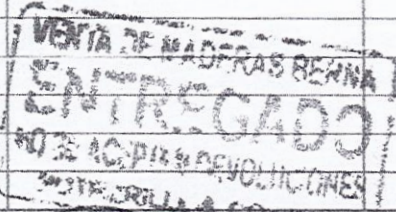 VENTA DE MADERAS BERNA
ENTREGADO
NO SE ACEPTAN DEVOLUCIONES